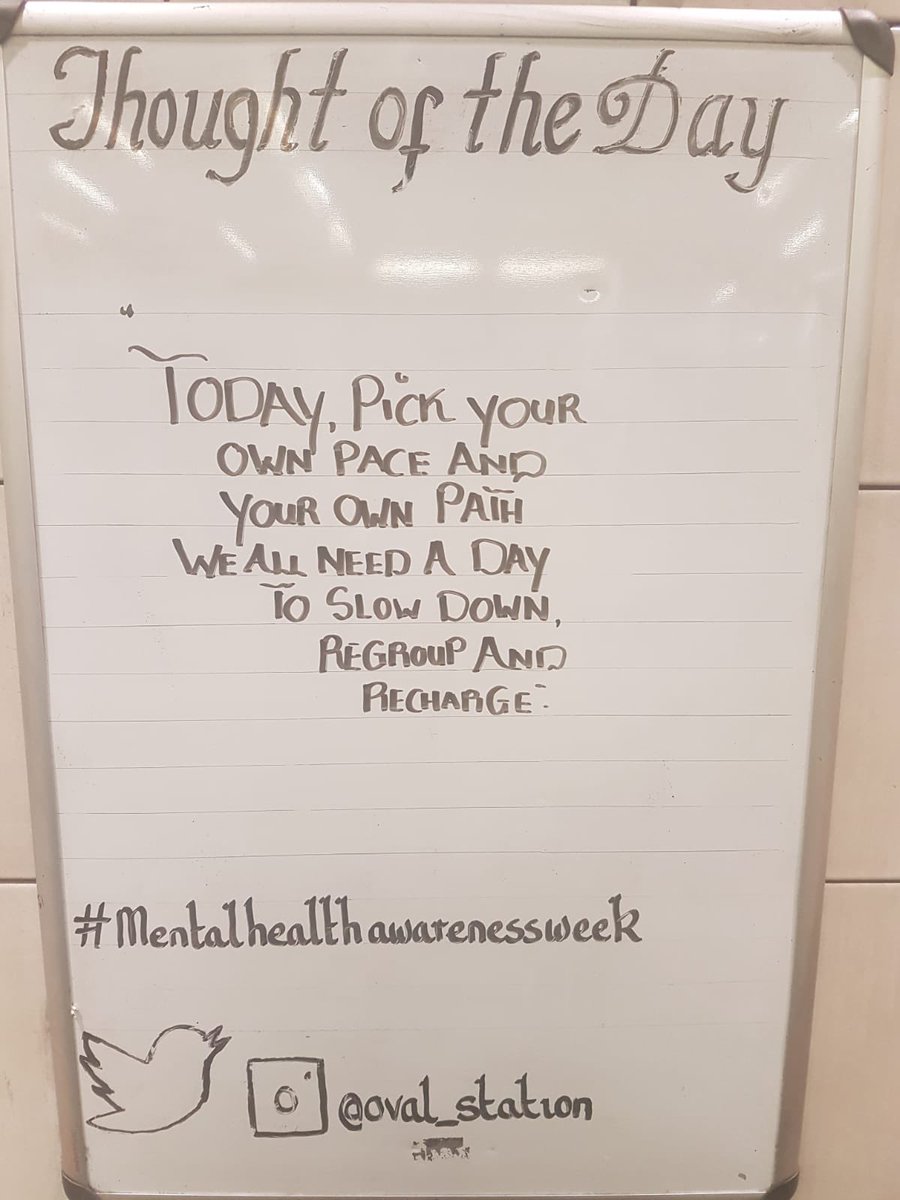 Thought of the Day
“
TODAY, PICK YOUR
OWN PACE AND
YOUR OWN PATH
WE ALL NEED A DAY
TO SLOW DOWN,
REGROUP AND
RECHARGE.
#Mentalhealthawarenessweek
@oval_station